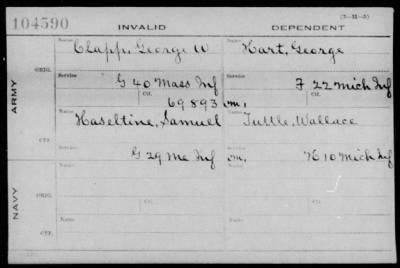 104590
INVALID DEPENDENT
(3-21-3)
Name Clapp, George W Name Hart, George
ARMY
ORIG.
Service Service
G 40 Mass Inf F 22 Mich Inf
Ctf. Ctf.
69893 m,
Haseltine, Samuel Tuttle, Wallace
CTF.
G 29 Me Inf m, H 10 Mich Inf
NAVY
ORIG.
Name Name
CTF.